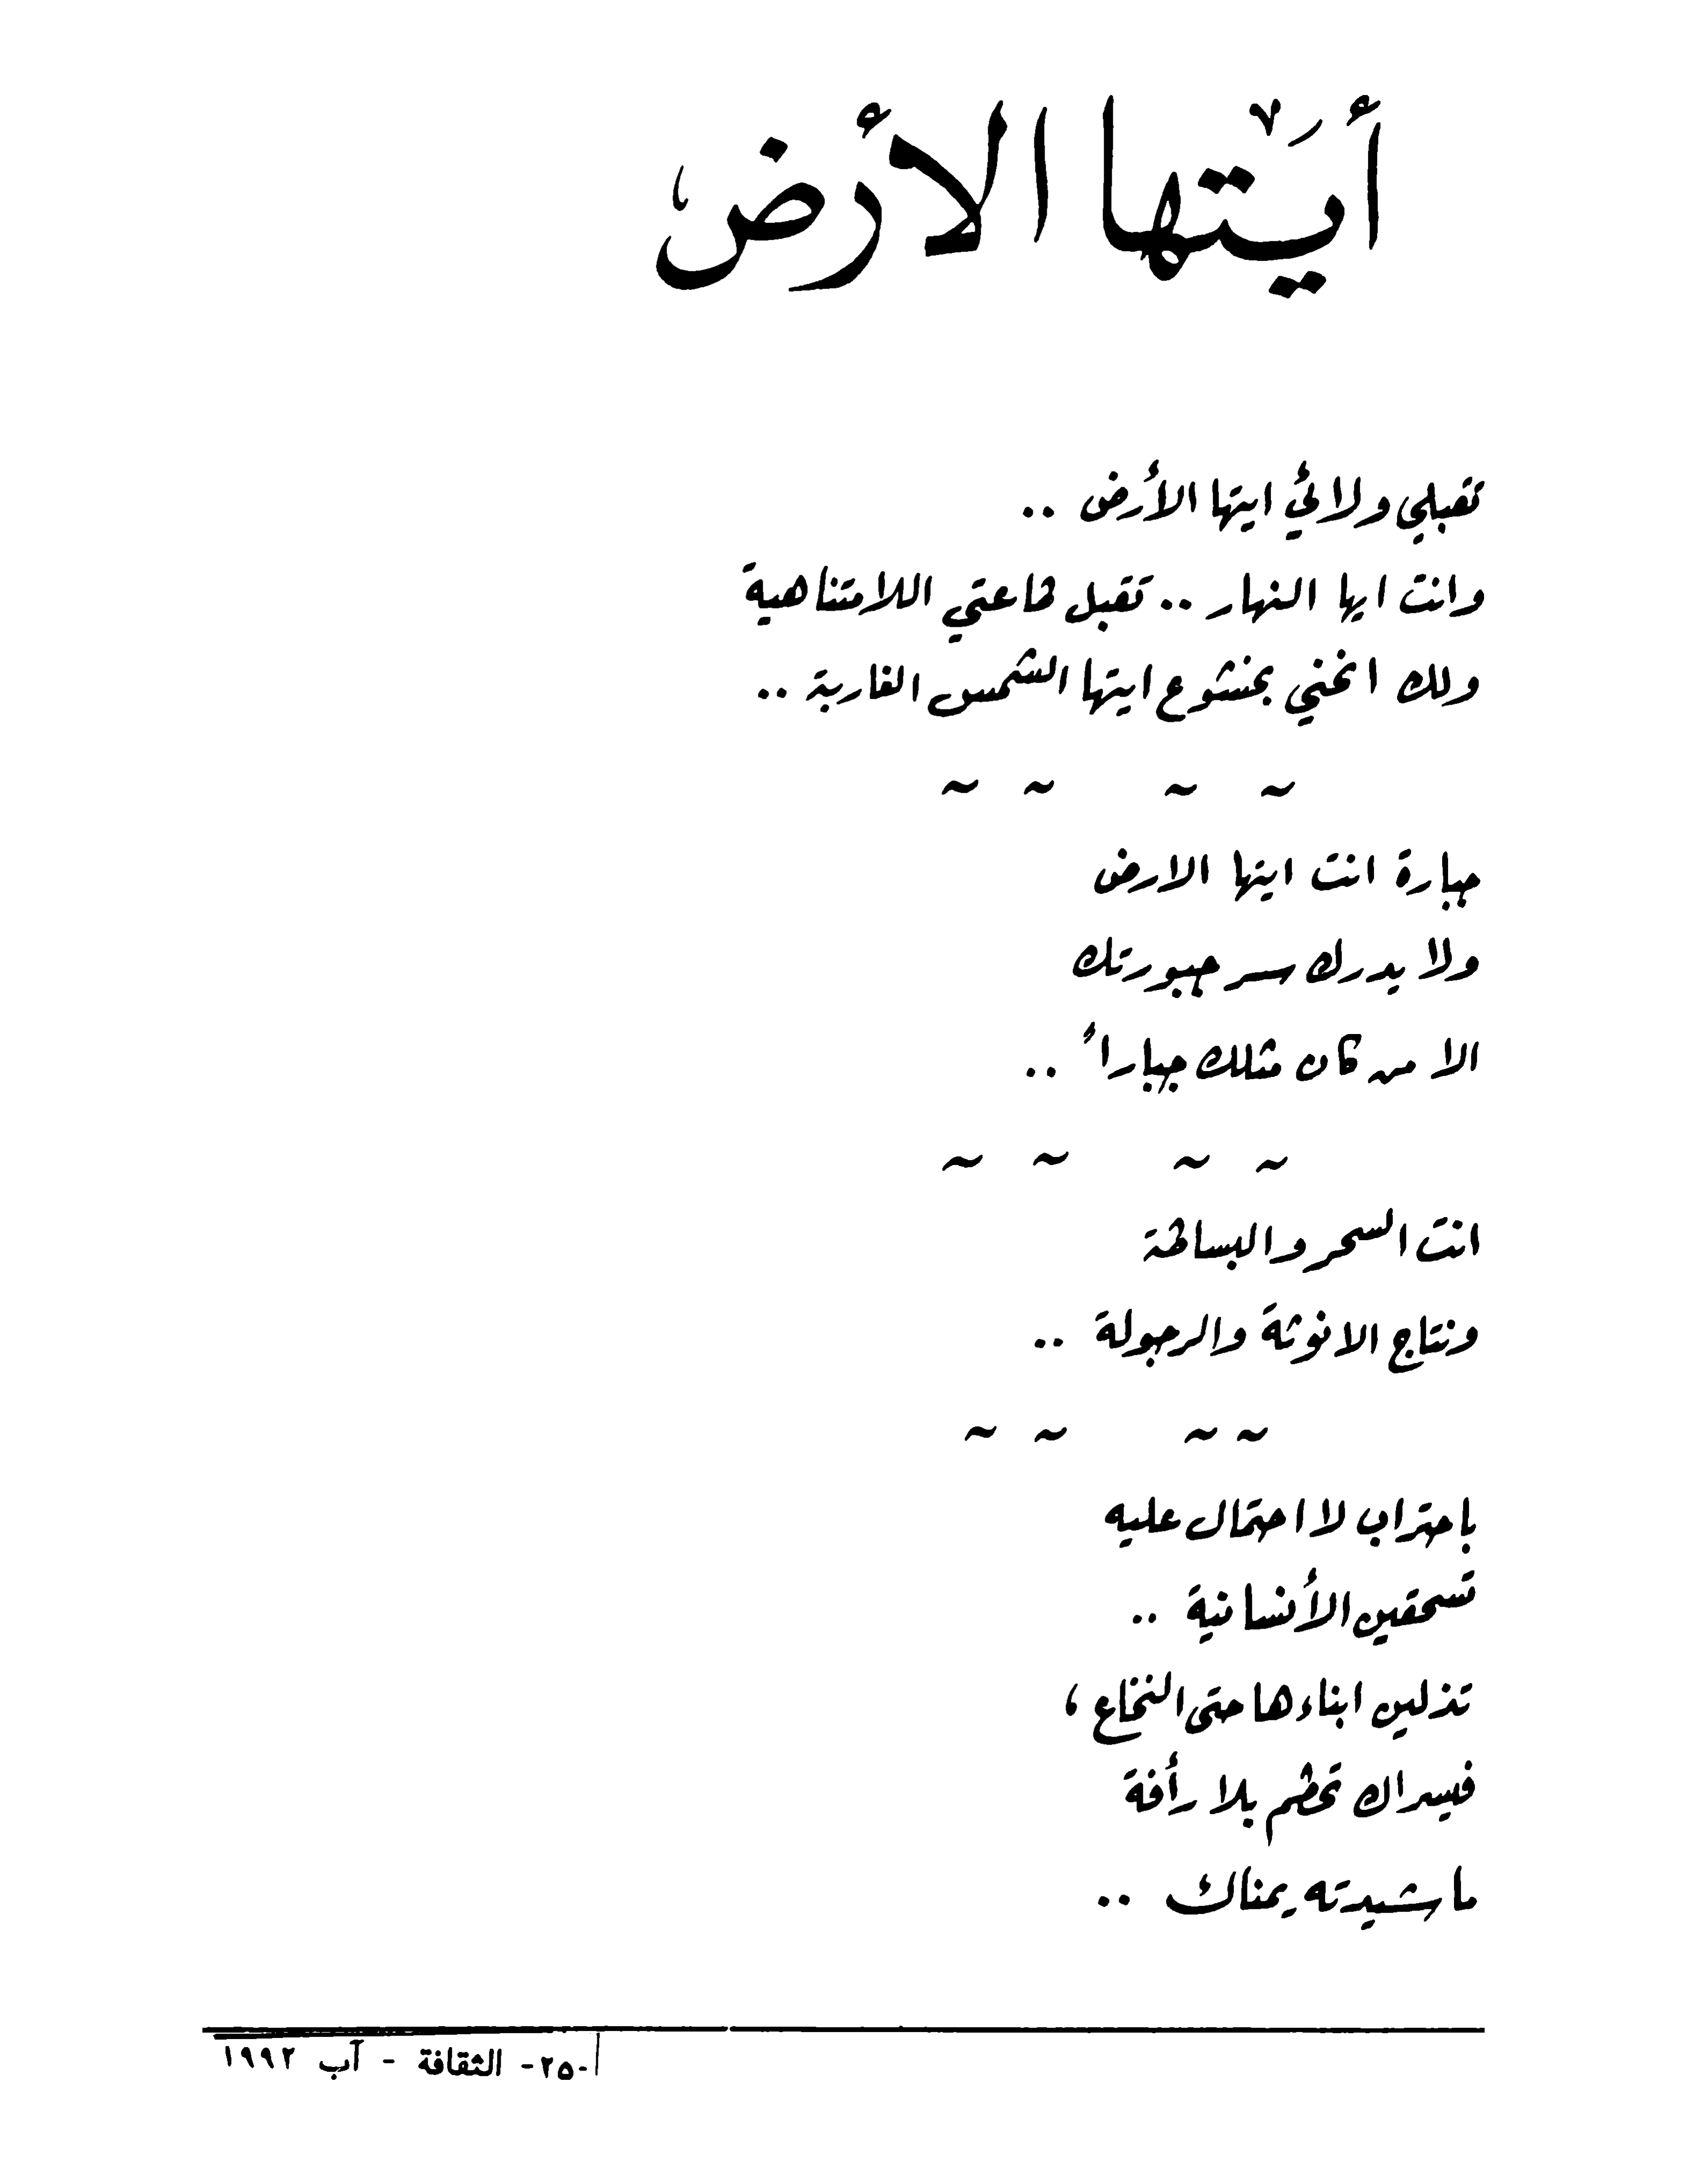 أيَّتها الأرض
تقبلي ولائي ايتها الأرض ..
وانت ايها النهار .. تقبل طاعتي اللامتناهية
ولك انحني بخشوع ايتها الشمس الغاربة ..
~ ~ ~ ~
جبارة انت ايتها الارض
ولا يدرك سر جبورتك
الا من كان مثلك جباراً ..
~ ~ ~ ~
انت السحر والبساطة
ونتاج الانوثة والرجولة ..
~ ~ ~ ~
باحتراب لا احتمال عليه
تسحقين الأنسانية ..
تذلين ابناءها حتى النخاع ،
فيسراك تحطم بلا رأفة
ما شيدته يمناك ..
-٢٥٠- الثقافة - آب ١٩٩٢